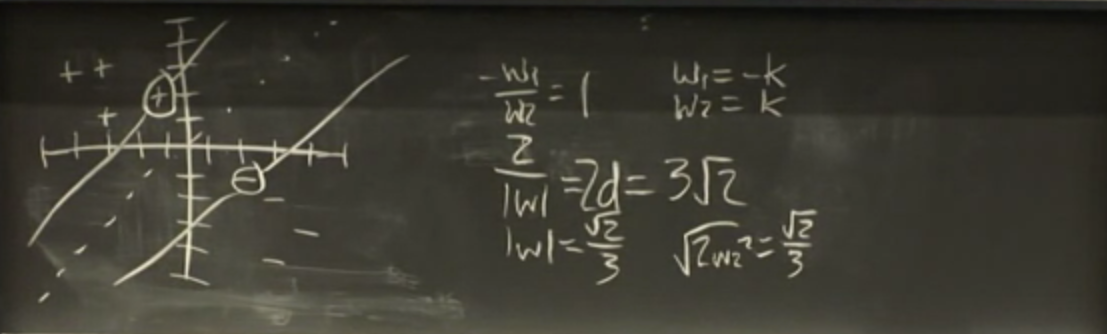 + +
+
+
-w₁/w₂ = 1
w₁ = -k
w₂ = k
2/|w| = 2d = 3√2
|w| = √2/3
√2w₂² = √2/3
−
− −
−